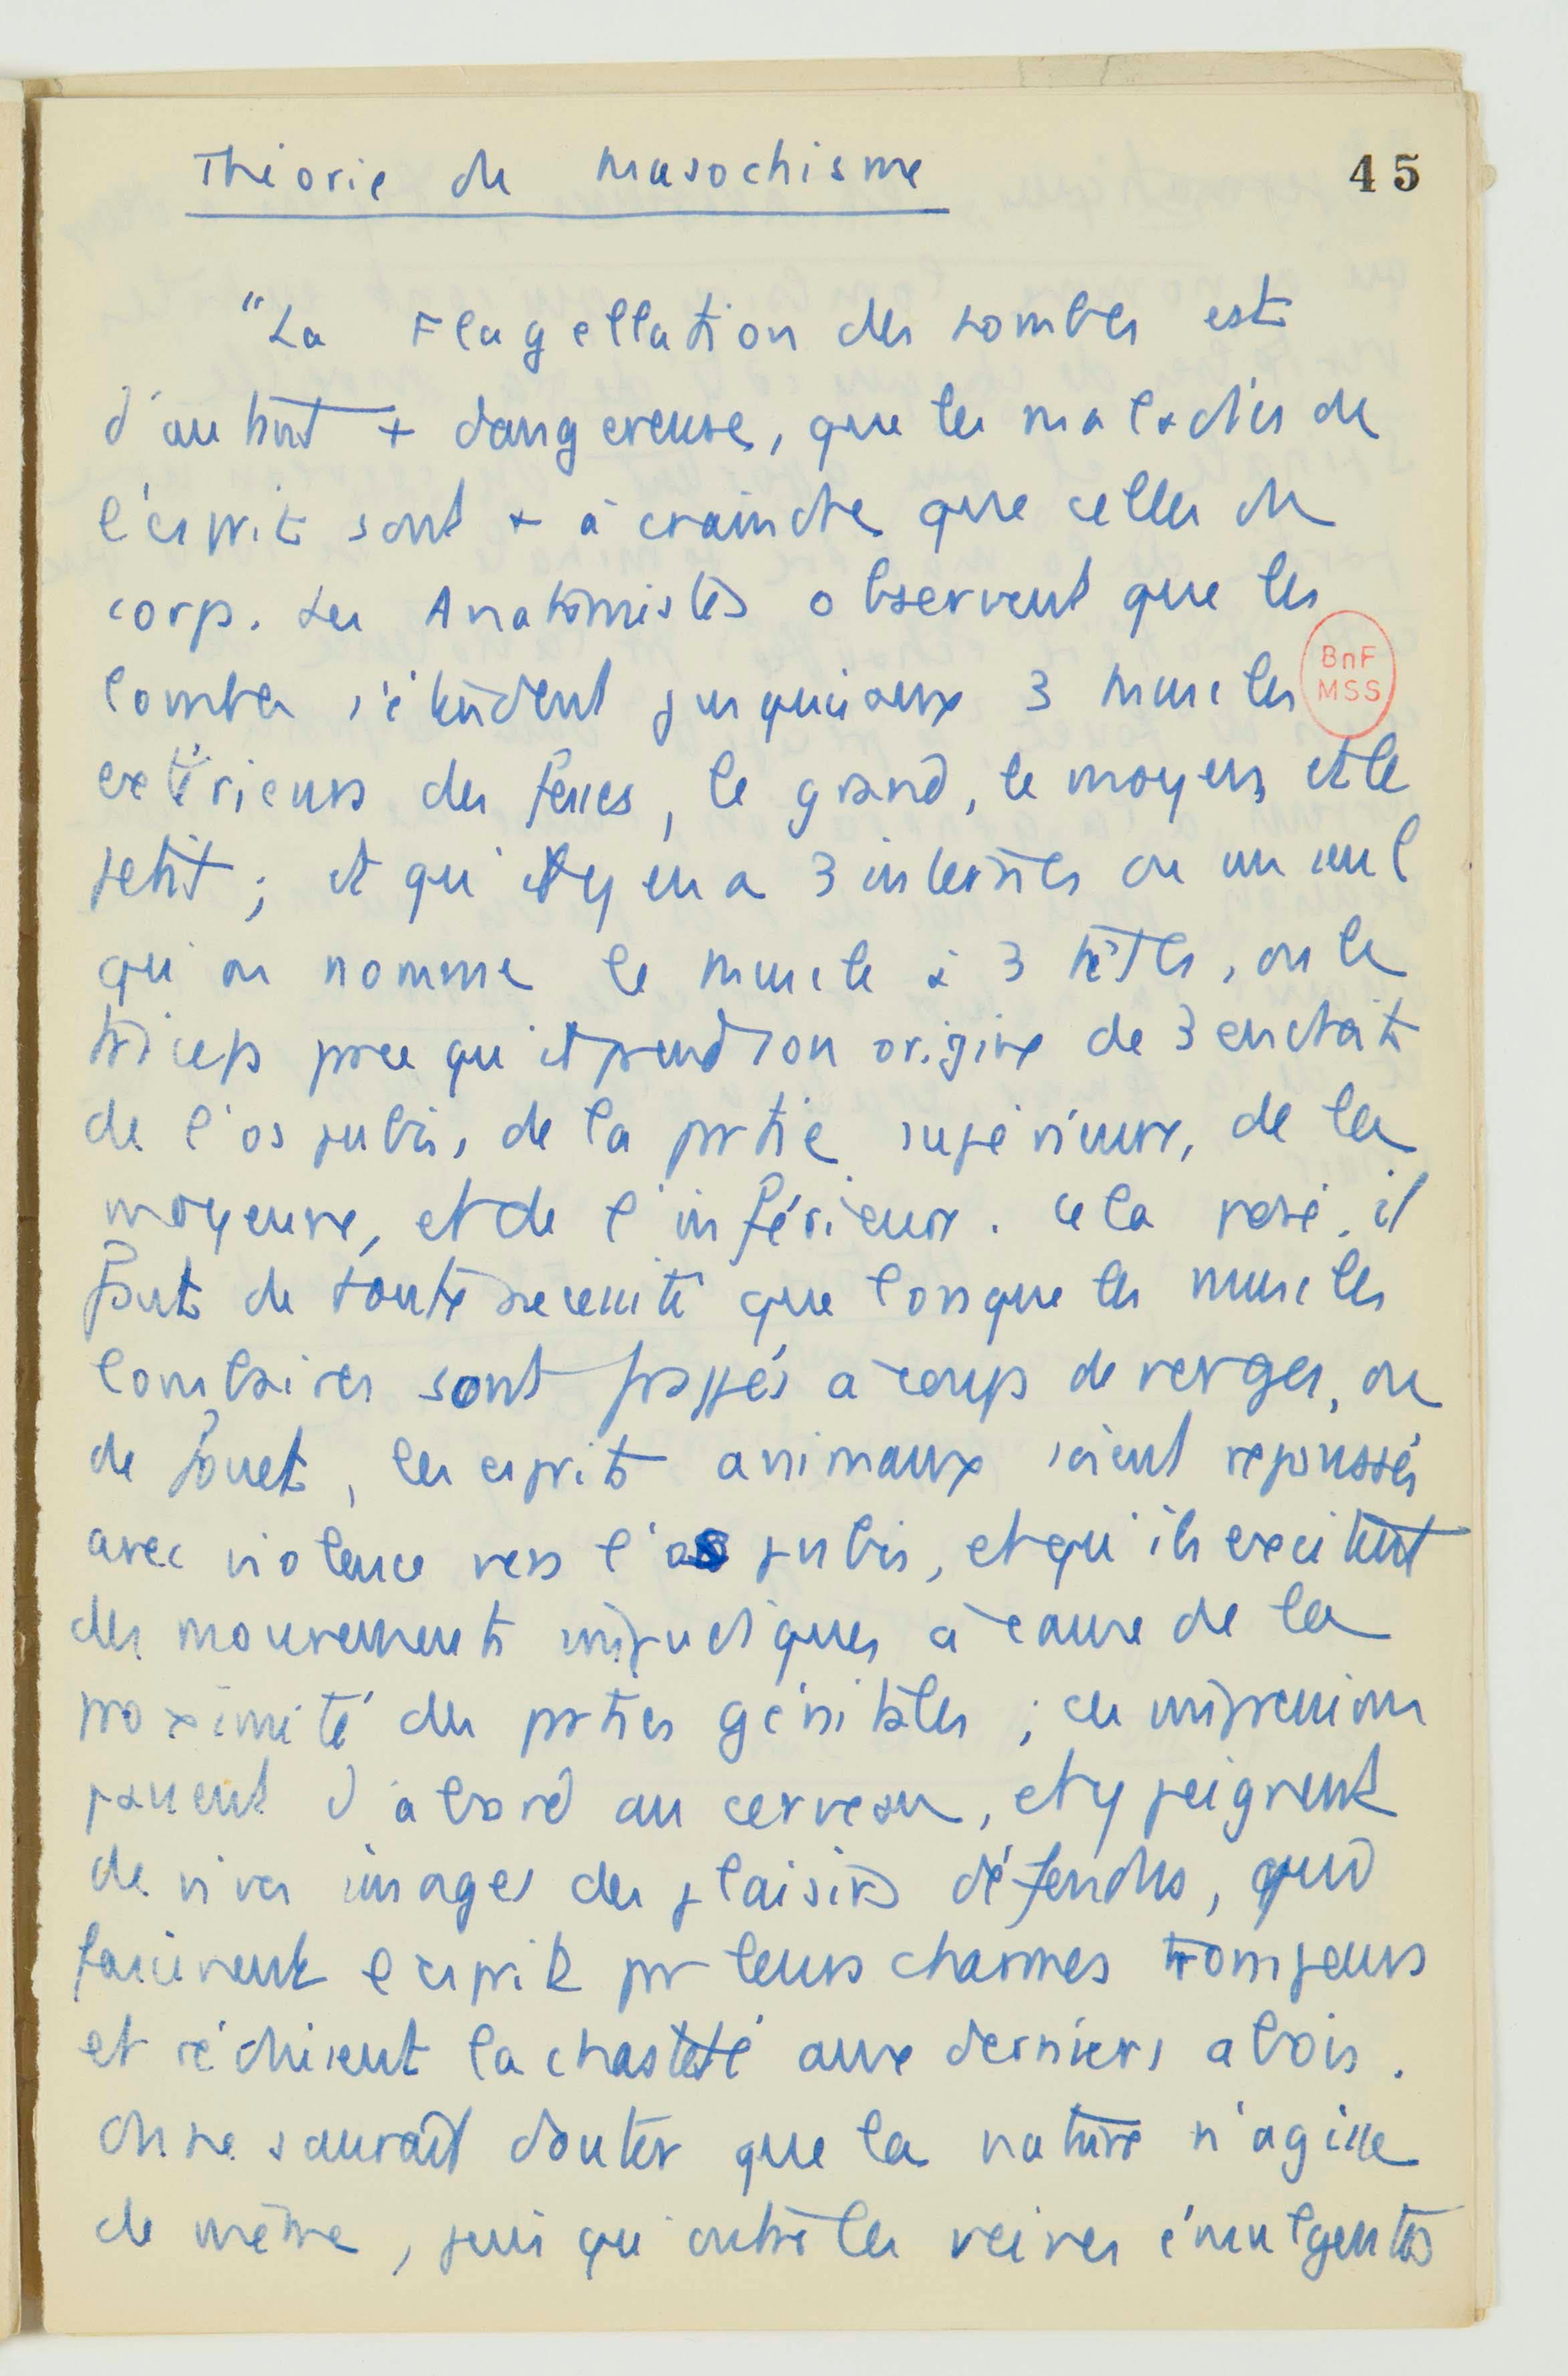 Théorie du masochisme
45
"La Flagellation des lombes est
d'autant + dangereuse, que les maladies de
l'esprit sont + à craindre que celles du
corp. Les Anatomistes observent que les
lombes s'étendent jusqu'aux 3 muscles
BnF
MSS
extérieurs des fesses, le grand, le moyen, et le
petit ; et qu'il y en a 3 internes ou un seul
qu'on nomme le muscle à 3 têtes, ou le
triceps parce qu'il prend son origine de 3 endroits
de l'os pubis, de la partie supérieure, de la
moyenne, et de l'inférieure. Cela posé, il
faut de toute nécessité que lorsque les muscles
lombaires sont frappés à coups de verges, ou
de fouet, les esprits animaux soient repoussés
avec violence vers l'os pubis, et qu'ils excitent
des mouvements impudiques à cause de la
proximité des parties génitales ; ces impressions
passent d'abord au cerveau, et y peignent
de vives images des plaisirs défendus, qui
fascinent l'esprit par leurs charmes trompeurs
et réduisent la chasteté aux derniers abois.
On ne saurait douter que la nature n'agisse
de même, puis qu'outre les veines émulgentes